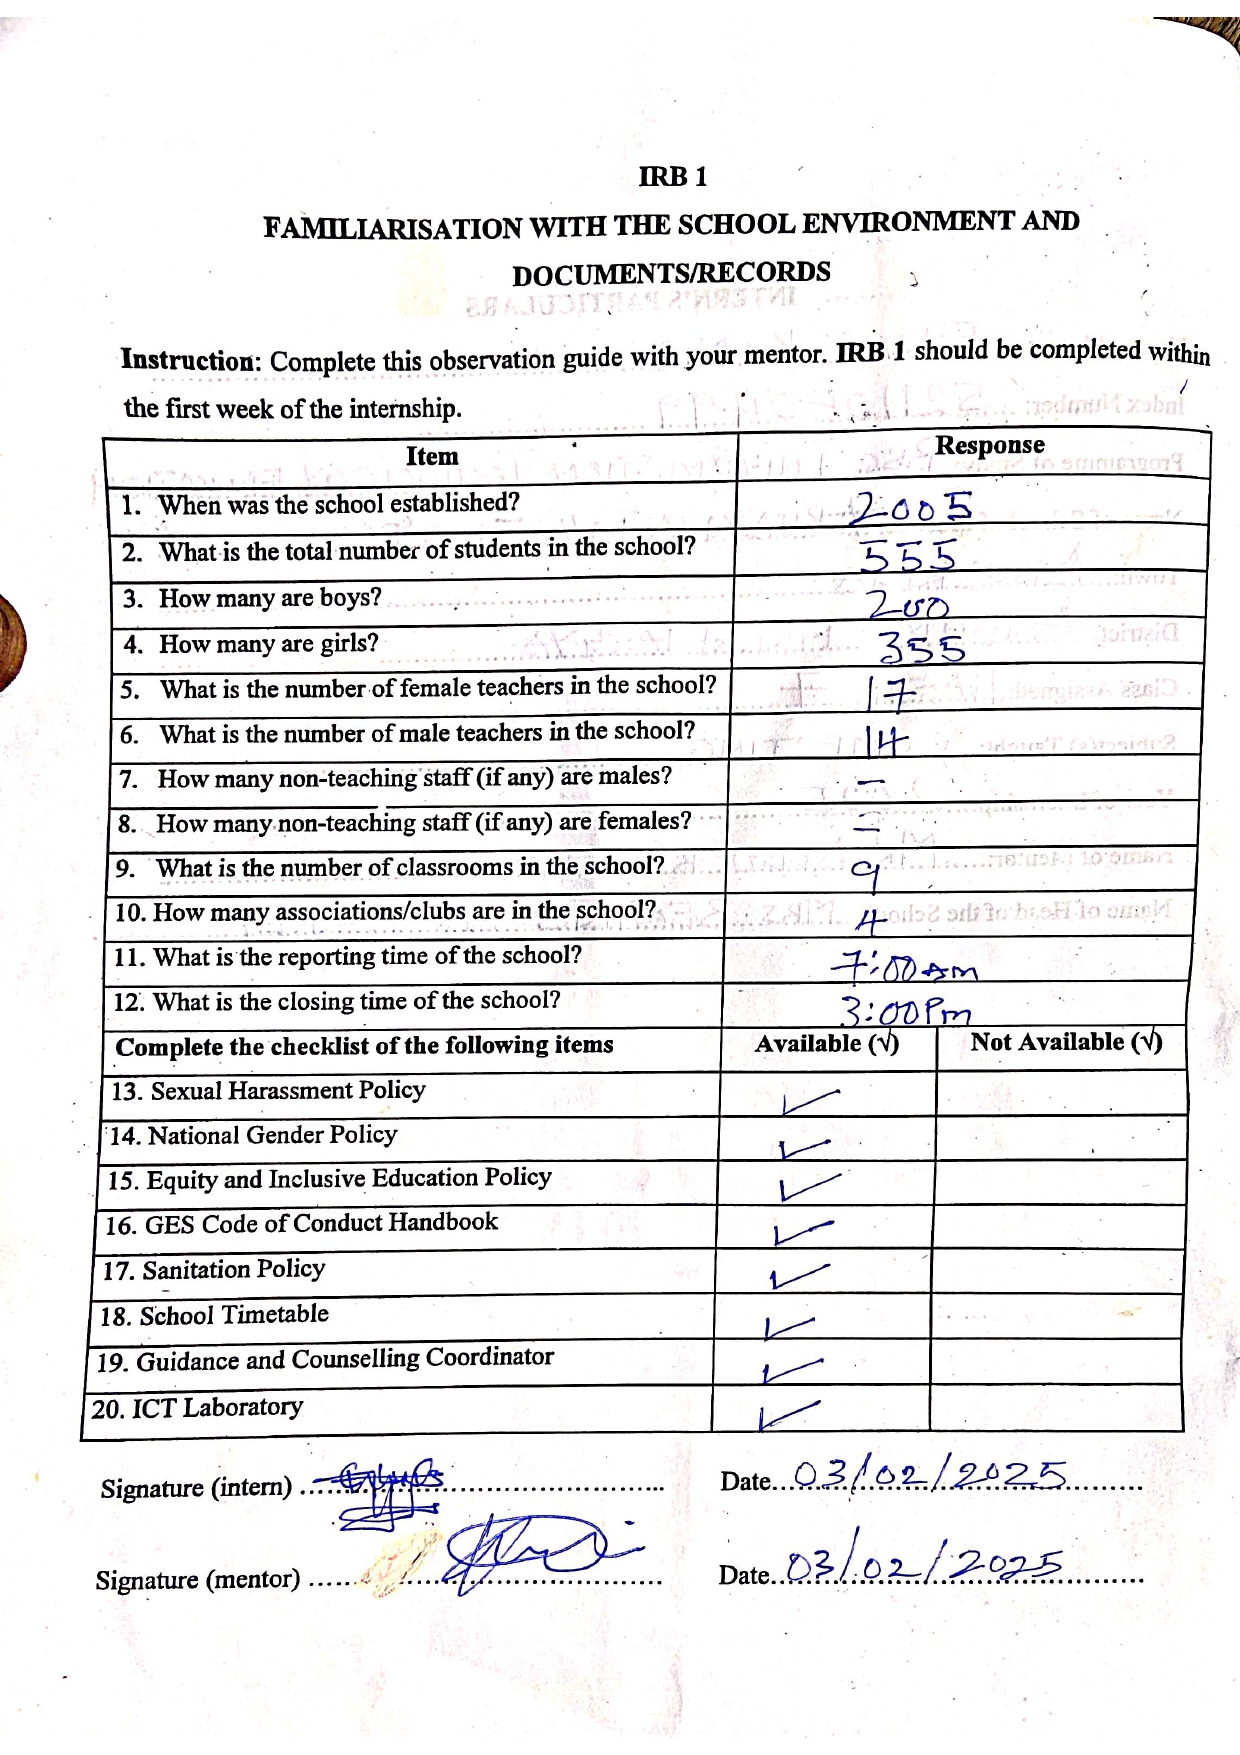 IRB 1
FAMILIARISATION WITH THE SCHOOL ENVIRONMENT AND
DOCUMENTS/RECORDS
Instruction: Complete this observation guide with your mentor. IRB 1 should be completed within
the first week of the internship.
Item Response
1. When was the school established? 2005
2. What is the total number of students in the school? 555
3. How many are boys? 200
4. How many are girls? 355
5. What is the number of female teachers in the school? 17
6. What is the number of male teachers in the school? 14
7. How many non-teaching staff (if any) are males? –
8. How many non-teaching staff (if any) are females? –
9. What is the number of classrooms in the school? 9
10. How many associations/clubs are in the school? 4
11. What is the reporting time of the school? 7:00am
12. What is the closing time of the school? 3:00Pm
Complete the checklist of the following items Available (√) Not Available (√)
13. Sexual Harassment Policy ✓
14. National Gender Policy ✓
15. Equity and Inclusive Education Policy ✓
16. GES Code of Conduct Handbook ✓
17. Sanitation Policy ✓
18. School Timetable ✓
19. Guidance and Counselling Coordinator ✓
20. ICT Laboratory ✓
Signature (intern) .......... Date...03/02/2025..........
Signature (mentor) .......... Date...03/02/2025..........